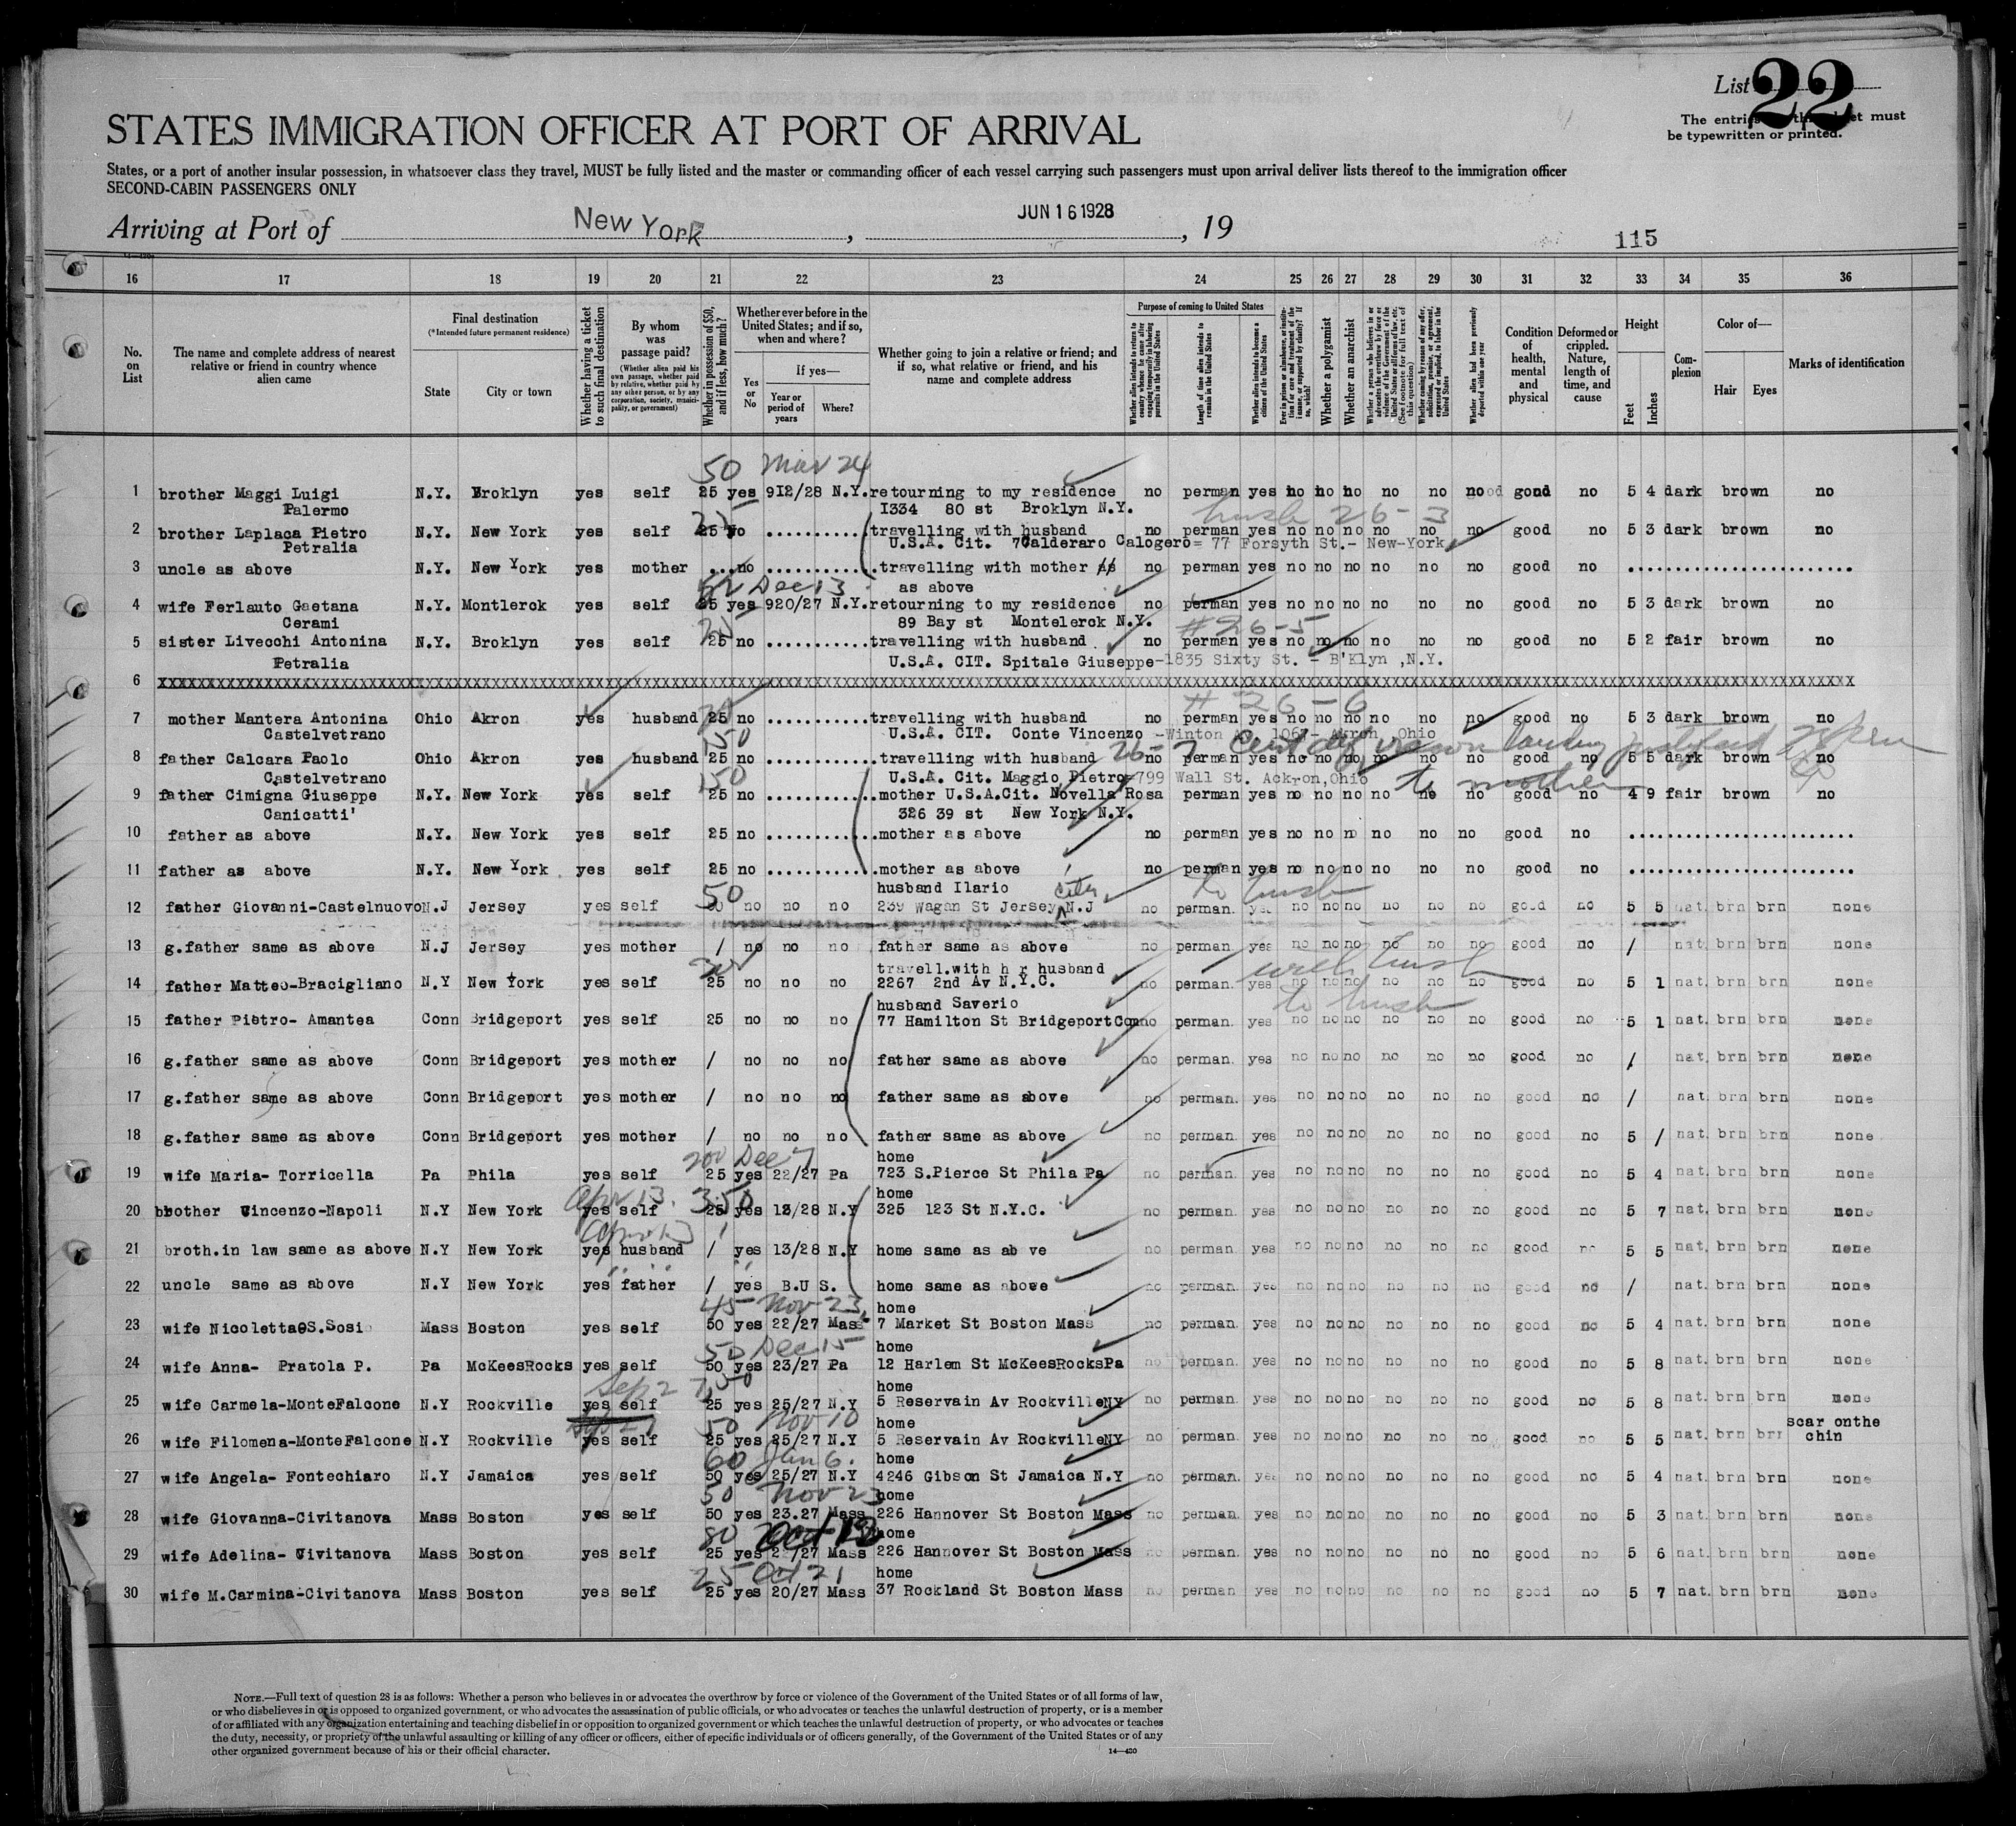 List 22
The entries on this sheet must
be typewritten or printed.
STATES IMMIGRATION OFFICER AT PORT OF ARRIVAL
States, or a port of another insular possession, in whatsoever class they travel, MUST be fully listed and the master or commanding officer of each vessel carrying such passengers must upon arrival deliver lists thereof to the immigration officer
SECOND-CABIN PASSENGERS ONLY
Arriving at Port of New York, JUN 16 1928, 19
115
16 17 18 19 20 21 22 23 24 25 26 27 28 29 30 31 32 33 34 35 36
No. on List
The name and complete address of nearest relative or friend in country whence alien came
Final destination
(*Intended future permanent residence)
State
City or town
Whether having a ticket to such final destination
By whom was passage paid?
(Whether alien paid his own passage, whether paid by relative, whether paid by any other person, or by any corporation, society, municipality, or government)
Whether in possession of $50, and if less, how much?
Whether ever before in the United States; and if so, when and where?
Yes or No
If yes—
Year or period of years
Where?
Whether going to join a relative or friend; and if so, what relative or friend, and his name and complete address
Purpose of coming to United States
Whether alien intends to return to country whence he came after engaging temporarily in laboring pursuits in the United States
Length of time alien intends to remain in the United States
Whether alien intends to become a citizen of the United States
Ever in prison or almshouse, or institution for care and treatment of the insane, or supported by charity? If so, which?
Whether a polygamist
Whether an anarchist
Whether a person who believes in or advocates the overthrow by force or violence of the Government of the United States or all forms of law, etc. (See footnote for full text of this question)
Whether coming by reason of any offer, solicitation, promise, or agreement, expressed or implied, to labor in the United States
Whether alien had been previously deported within one year
Condition of health, mental and physical
Deformed or crippled. Nature, length of time, and cause
Height
Feet
Inches
Complexion
Color of—
Hair
Eyes
Marks of identification
50 Mar 24
1 brother Maggi Luigi N.Y. Broklyn yes self 25 yes 912/28 N.Y. retourning to my residence no perman yes no no no no no no good no 5 4 dark brown no
Palermo I334 80 st Broklyn N.Y.
25 husb 26-3
2 brother Laplaca Pietro N.Y. New York yes self 25 no ........... travelling with husband no perman yes no no no no no no good no 5 3 dark brown no
Petralia U.S.A. Cit. Calderaro Calogero= 77 Forsyth St.- New-York
3 uncle as above N.Y. New York yes mother ... no ........... travelling with mother no perman yes no no no no no no good no ........................
Dec 13 as above
4 wife Ferlauto Gaetana N.Y. Montlerck yes self 25 yes 920/27 N.Y. retourning to my residence no perman yes no no no no no no good no 5 3 dark brown no
Cerami 89 Bay st Montelerck N.Y.
25 #26-5
5 sister Livecchi Antonina N.Y. Broklyn yes self 25 no ........... travelling with husband no perman yes no no no no no no good no 5 2 fair brown no
Petralia U.S.A. CIT. Spitale Giuseppe-1835 Sixty St. - B'Klyn ,N.Y.
6 XXXXXXXXXXXXXXXXXXXXXXXXXXXXXXXXXXXXXXXXXX
#26-6
7 mother Mantera Antonina Ohio Akron yes husband 25 no ........... travelling with husband no perman yes no no no no no no good no 5 3 dark brown no
Castelvetrano U.S.A. CIT. Conte Vincenzo -Winton Av. 1061- Akron, Ohio
150 26-7
8 father Calcara Paolo Ohio Akron yes husband 25 no ........... travelling with husband no perman yes no no no no no no good no 5 5 dark brown no
Castelvetrano U.S.A. Cit. Maggio Pietro=799 Wall St. Ackron,Ohio
150 to mother
9 father Cimigna Giuseppe N.Y. New York yes self 25 no ........... mother U.S.A.Cit. Novella Rosa perman yes no no no no no no good no 4 9 fair brown no
Canicatti' 326 39 st New York N.Y.
10 father as above N.Y. New York yes self 25 no ........... mother as above no perman yes no no no no no no good no ........................
11 father as above N.Y. New York yes self 25 no ........... mother as above no perman yes no no no no no no good no ........................
50 husband Ilario City to husb
12 father Giovanni-Castelnuovo N.J Jersey yes self 50 no no no 239 Wagan St Jersey N.J no perman. yes no no no no no no good no 5 5 nat. brn brn none
13 g.father same as above N.J Jersey yes mother / no no no father same as above no perman yes no no no no no no good no / nat. brn brn none
travell.with h r husband with husb
14 father Matteo-Bracigliano N.Y New York yes self 25 no no no 2267 2nd Av N.Y.C. no perman. yes no no no no no no good no 5 1 nat. brn brn none
husband Saverio to husb
15 father Pietro- Amantea Conn Bridgeport yes self 25 no no no 77 Hamilton St BridgeportConn no perman. yes no no no no no no good no 5 1 nat. brn brn none
16 g.father same as above Conn Bridgeport yes mother / no no no father same as above no perman. yes no no no no no no good no / nat. brn brn none
17 g.father same as above Conn Bridgeport yes mother / no no no father same as above no perman. yes no no no no no no good no / nat. brn brn none
18 g.father same as above Conn Bridgeport yes mother / no no no father same as above no perman. yes no no no no no no good no 5 / nat. brn brn none
200 Dec 7 home
19 wife Maria- Torricella Pa Phila yes self 25 yes 22/27 Pa 723 S.Pierce St Phila Pa no perman. yes no no no no no no good no 5 4 nat. brn brn none
Apr 13. 350 home
20 brother Vincenzo-Napoli N.Y New York yes self 25 yes 13/28 N.Y 325 123 St N.Y.C. no perman. yes no no no no no no good no 5 7 nat. brn brn none
Apr 13
21 broth.in law same as above N.Y New York yes husband / yes 13/28 N.Y home same as ab ve no perman. yes no no no no no no good no 5 5 nat. brn brn none
22 uncle same as above N.Y New York yes father / yes B.U S. home same as above no perman. yes no no no no no no good no / nat. brn brn none
45 Nov 23 home
23 wife Nicoletta S.Sosi Mass Boston yes self 50 yes 22/27 Mass 7 Market St Boston Mass no perman. yes no no no no no no good no 5 4 nat. brn brn none
50 Dec 15 home
24 wife Anna- Pratola P. Pa McKeesRocks yes self 50 yes 23/27 Pa 12 Harlem St McKeesRocksPa no perman. yes no no no no no no good no 5 8 nat. brn brn none
Sep 27 home
25 wife Carmela-MonteFalcone N.Y Rockville yes self 25 yes 25/27 N.Y 5 Reservain Av RockvilleNY no perman. yes no no no no no no good no 5 8 nat. brn brn none
50 Nov 10 home scar onthe
26 wife Filomena-MonteFalcone N.Y Rockville yes self 25 yes 25/27 N.Y 5 Reservain Av RockvilleNY no perman. yes no no no no no no good no 5 5 nat. brn brn chin
60 Jun 6. home
27 wife Angela- Fontechiaro N.Y Jamaica yes self 50 yes 25/27 N.Y 4246 Gibson St Jamaica N.Y no perman. yes no no no no no no good no 5 4 nat. brn brn none
50 Nov 23 home
28 wife Giovanna-Civitanova Mass Boston yes self 50 yes 23.27 Mass 226 Hannover St Boston Mass no perman. yes no no no no no no good no 5 3 nat. brn brn none
80 Oct home
29 wife Adelina- Civitanova Mass Boston yes self 25 yes /27 Mass 226 Hannover St Boston Mass no perman. yes no no no no no no good no 5 6 nat. brn brn none
25 Oct 21 home
30 wife M.Carmina-Civitanova Mass Boston yes self 25 yes 20/27 Mass 37 Rockland St Boston Mass no perman yes no no no no no no good no 5 7 nat. brn brn none
NOTE.—Full text of question 28 is as follows: Whether a person who believes in or advocates the overthrow by force or violence of the Government of the United States or of all forms of law,
or who disbelieves in or is opposed to organized government, or who advocates the assassination of public officials, or who advocates or teaches the unlawful destruction of property, or is a member
of or affiliated with any organization entertaining and teaching disbelief in or opposition to organized government or which teaches the unlawful destruction of property, or who advocates or teaches
the duty, necessity, or propriety of the unlawful assaulting or killing of any officer or officers, either of specific individuals or of officers generally, of the Government of the United States or of any
other organized government because of his or their official character.
14—420